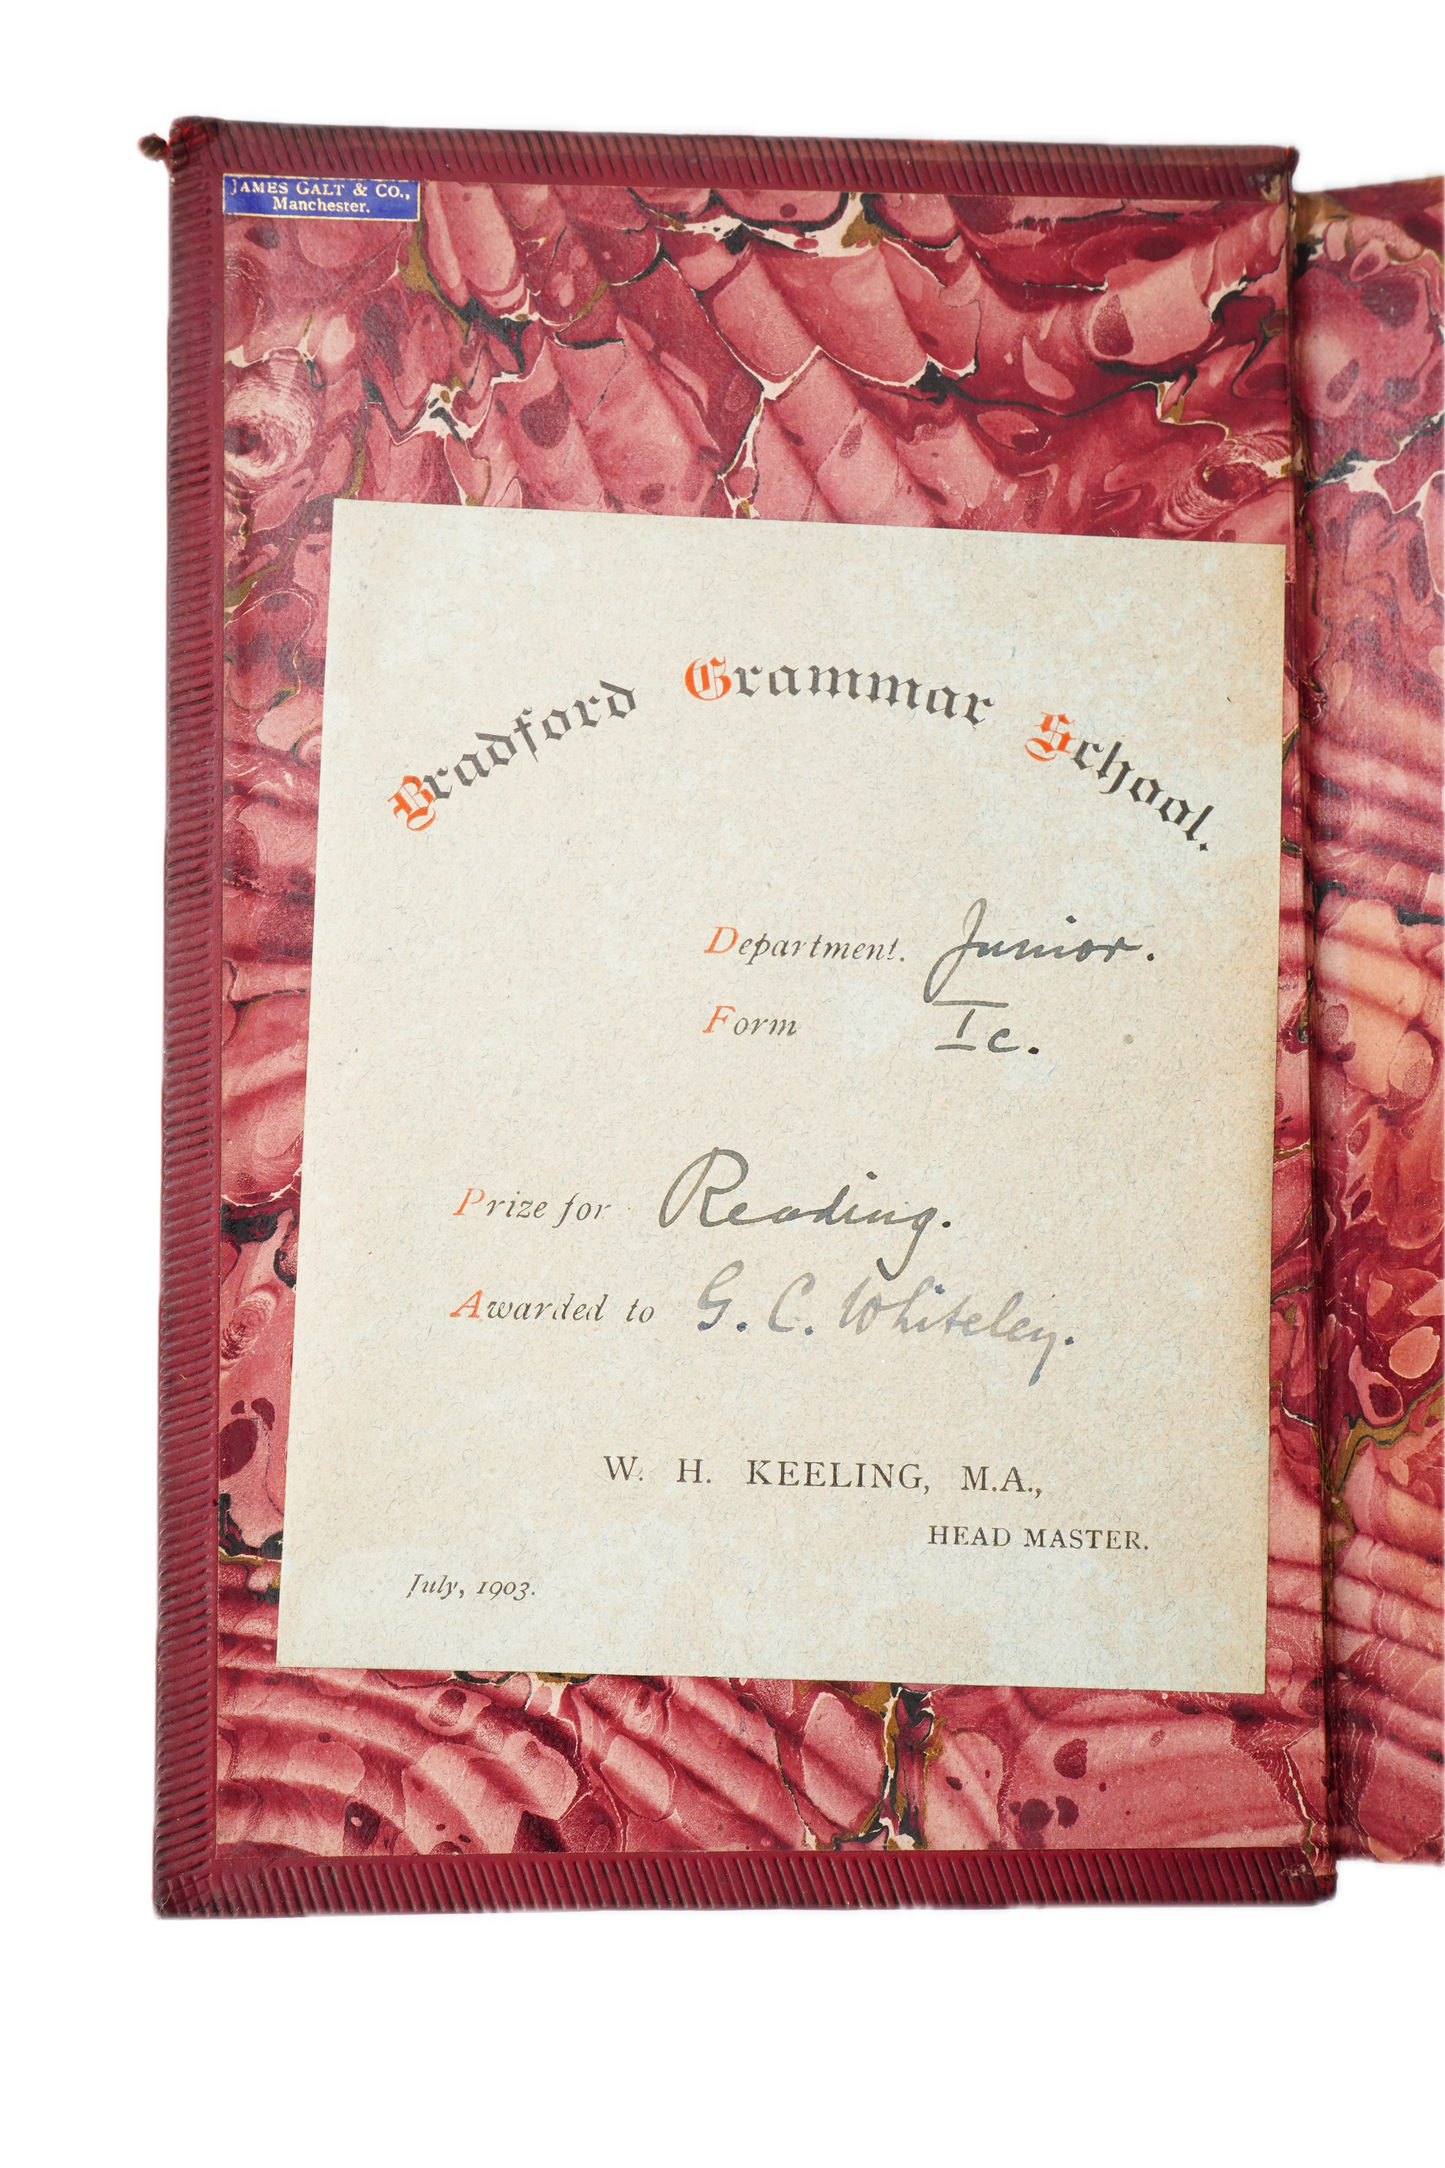 JAMES GALT & CO.,
Manchester.
Bradford Grammar School.
Department. Junior.
Form Ic.
Prize for Reading.
Awarded to G. C. Whiteley.
W. H. KEELING, M.A.,
HEAD MASTER.
July, 1903.